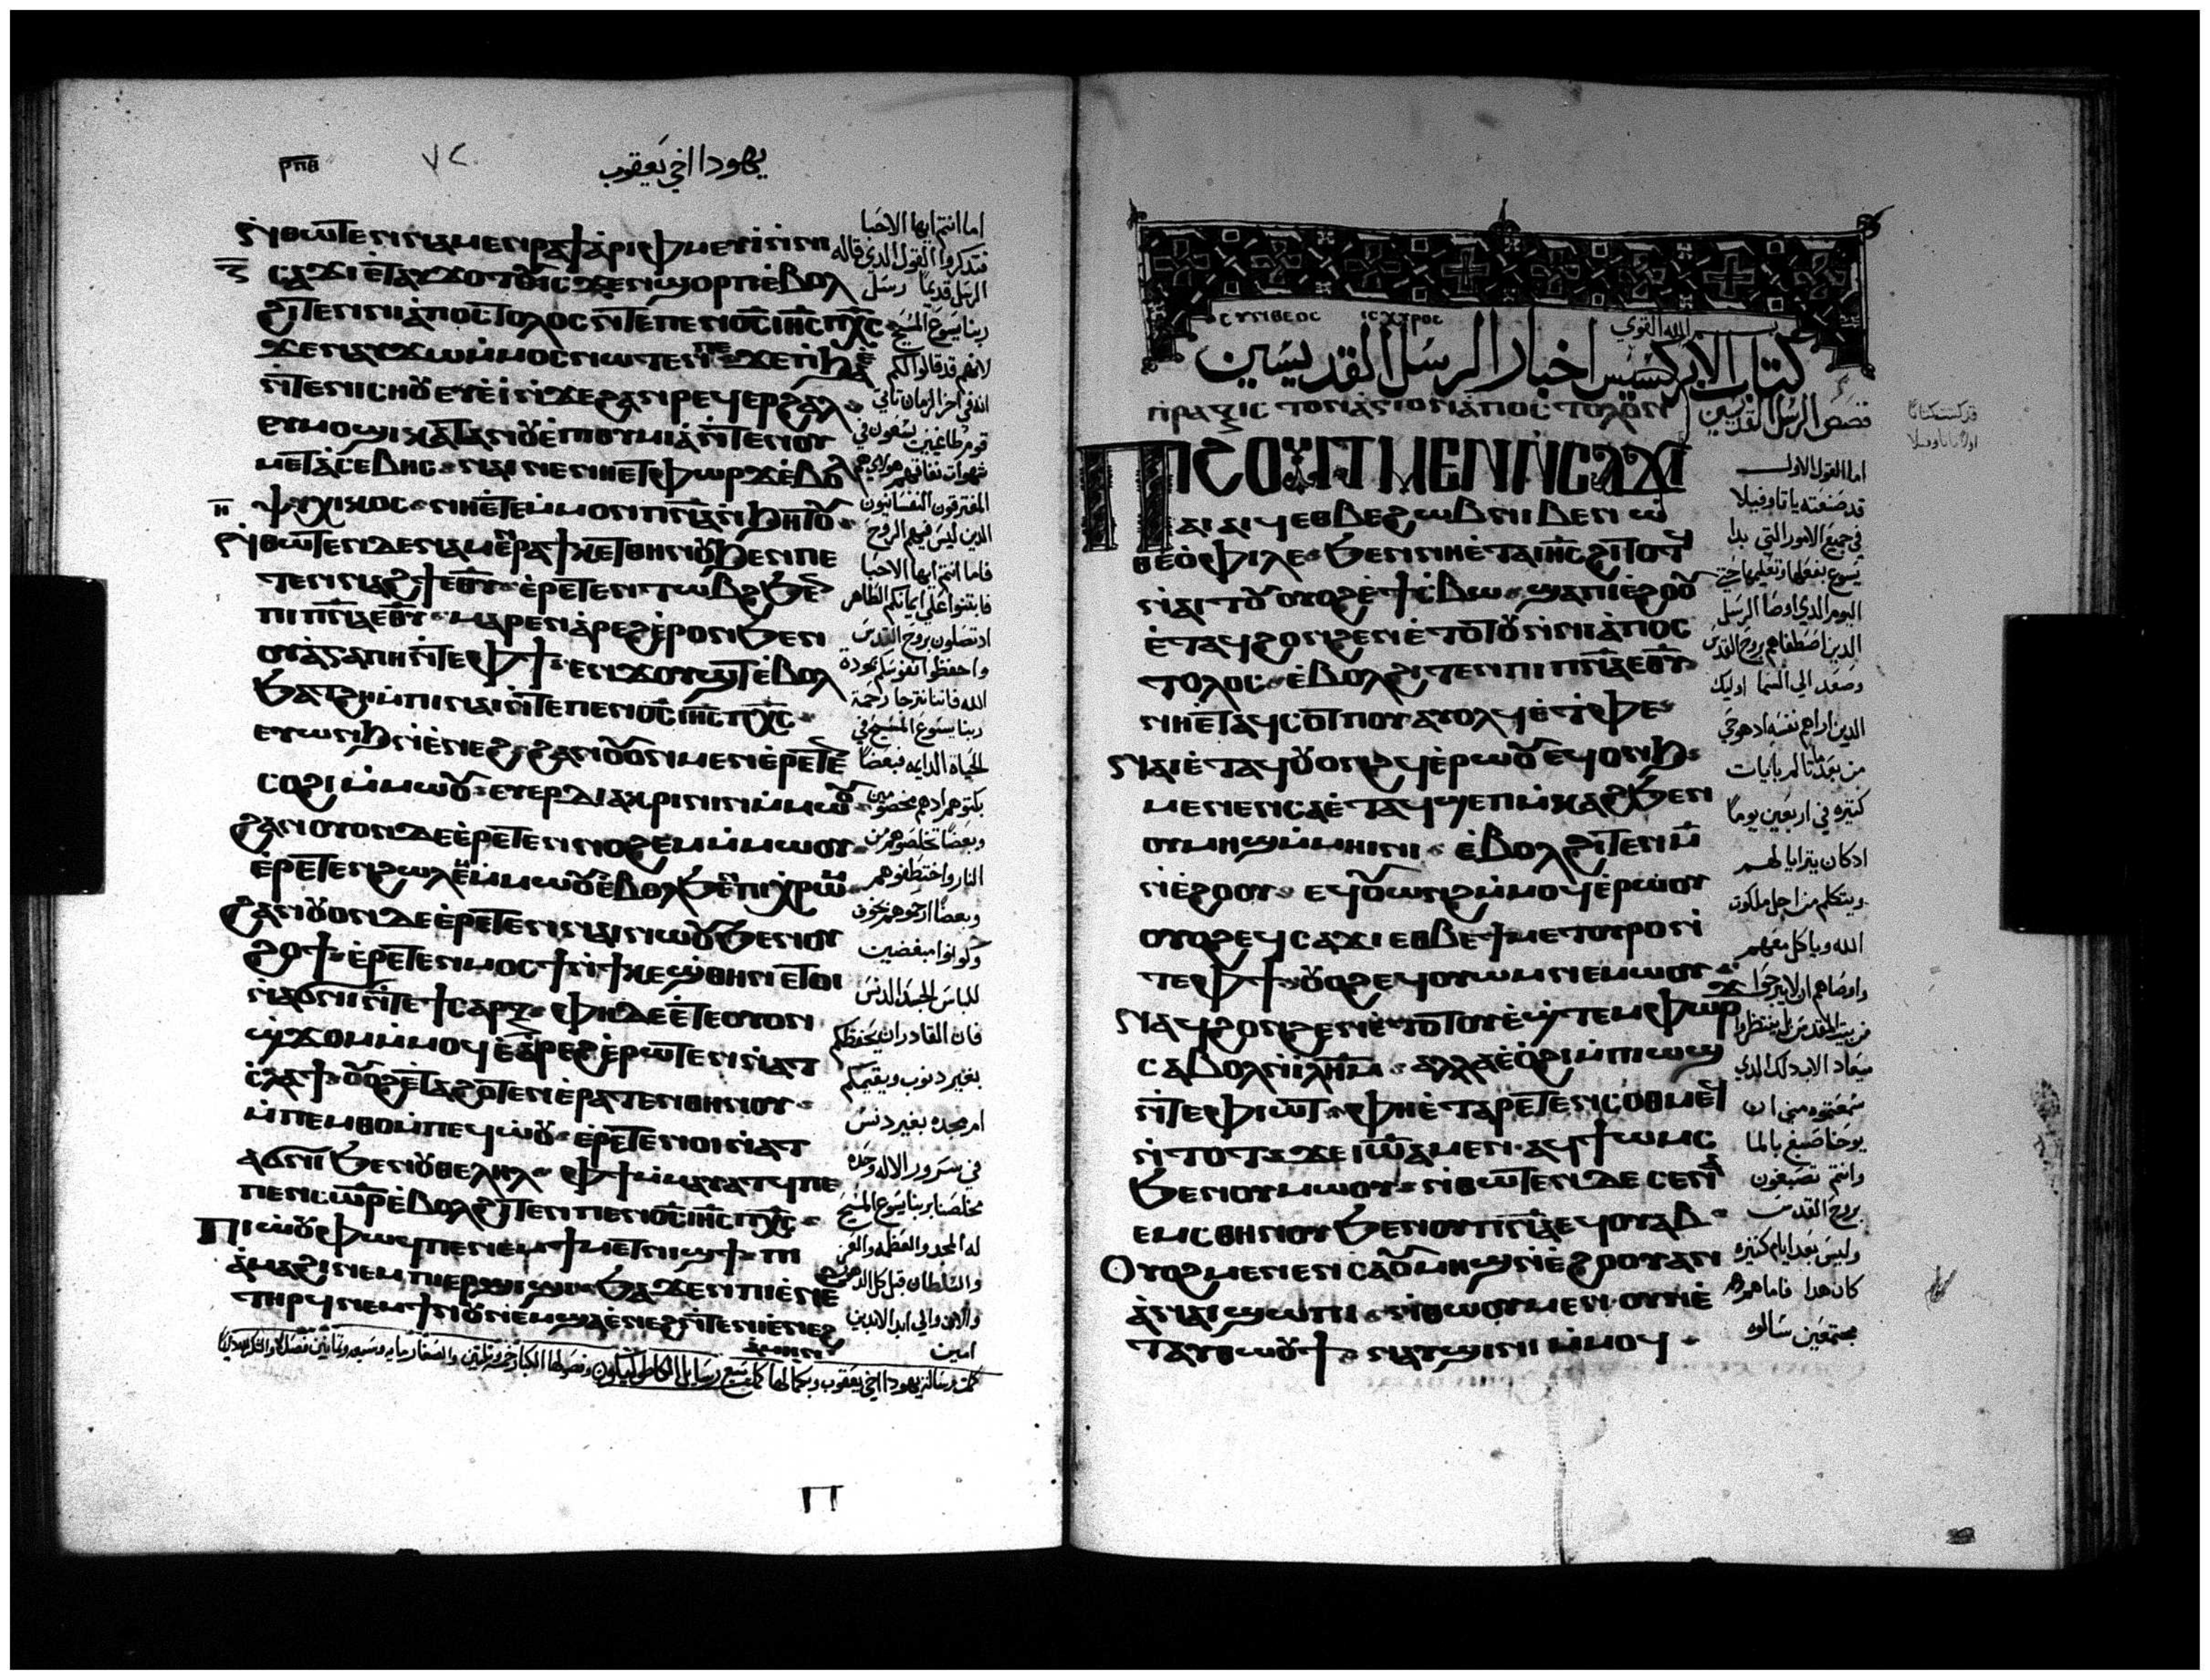 ⲣⲡⲃ
يهودا اخي يعقوب
ⲛ̇ⲑⲱⲧⲉⲛ ⲛⲁⲙⲉⲛⲣⲁϯ ⲁ̇ⲣⲓⲫⲙⲉⲩⲓ̇ ⲛ̇ⲛⲓ
ⲥⲁϫⲓ ⲉ̇ⲧⲁⲩϫⲟⲧⲟⲩ ⲓⲥϫⲉⲛ ϣⲟⲣⲡ ⲉ̇ⲃⲟⲗ
ϩⲓⲧⲉⲛ ⲛⲓⲁ̇ⲡⲟⲥⲧⲟⲗⲟⲥ ⲛ̇ⲧⲉ ⲡⲉⲛⲟ̅ⲥ̅ ⲓⲏ̅ⲥ̅ ⲡⲭ̅ⲥ̅
ϫⲉ ⲛⲁⲩϫⲱ ⲙ̇ⲙⲟⲥ ⲛⲱⲧⲉⲛ ⲡⲉ ϫⲉ ⲛ̇ϧⲁⲉ̇
ⲛ̇ⲧⲉ ⲛⲓⲥⲏⲟⲩ ⲉⲩⲉ̇ⲓ̇ ⲛ̇ϫⲉ ϩⲁⲛⲣⲉϥⲉⲣϩⲁⲗ
ⲉⲩⲙⲟϣⲓ ⲕⲁⲧⲁ ⲛⲟⲩⲉ̇ⲡⲓⲑⲩⲙⲓⲁ̇ ⲛ̇ⲧⲉ ⲛⲟⲩ
ⲙⲉⲧⲁ̇ⲥⲉⲃⲏⲥ ⲛⲁⲓ ⲛⲉ ⲛⲏⲉⲧⲫⲱⲣϫ ⲉ̇ⲃⲟⲗ
ⲯⲩⲭⲓⲕⲟⲥ ⲛⲏⲉ̇ⲧⲉ ⲙ̇ⲙⲟⲛ ⲡⲛ̅ⲁ̅ ⲛ̇ϧⲏⲧⲟⲩ
ⲛ̇ⲑⲱⲧⲉⲛ ⲇⲉ ⲛⲁⲙⲉⲛⲣⲁϯ ⲕⲉⲧⲑⲏⲛⲟⲩ ϧⲉⲛ ⲡⲉ
ⲧⲉⲛⲛⲁϩϯ ⲉⲑⲩ ⲉ̇ⲣⲉⲧⲉⲛⲧⲱⲃϩ ϧⲉⲛ
ⲡⲓⲡⲛ̅ⲁ̅ ⲉⲑⲩ ⲙⲁⲣⲉⲛⲁ̇ⲣⲉϩ ⲉ̇ⲣⲟⲛ ϧⲉⲛ
ⲟⲩⲁ̇ⲅⲁⲡⲏ ⲛ̇ⲧⲉ ⲫϯ ⲉⲛϫⲟⲩϣⲧ ⲉ̇ⲃⲟⲗ
ϧⲁⲧϩⲏ ⲙ̇ⲡⲓⲛⲁⲓ ⲛ̇ⲧⲉ ⲡⲉⲛⲟ̅ⲥ̅ ⲓⲏ̅ⲥ̅ ⲡⲭ̅ⲥ̅
ⲉⲩⲱⲛϧ ⲛ̇ⲉ̇ⲛⲉϩ ϩⲁⲛⲟⲩⲟⲛ ⲙⲉⲛ ⲉ̇ⲣⲉⲧⲉⲛ
ⲥⲟϩⲓ ⲙ̇ⲙⲱⲟⲩ ⲉⲩⲉⲣⲇⲓⲁⲕⲣⲓⲛⲓⲛ ⲙ̇ⲙⲱⲟⲩ
ϩⲁⲛⲟⲩⲟⲛ ⲇⲉ ⲉ̇ⲣⲉⲧⲉⲛⲛⲟϩⲉⲙ ⲙ̇ⲙⲱⲟⲩ
ⲉ̇ⲣⲉⲧⲉⲛϩⲱⲗⲉⲙ ⲙ̇ⲙⲱⲟⲩ ⲉ̇ⲃⲟⲗϧⲉⲛ ⲡⲓⲭⲣⲱⲙ
ϩⲁⲛⲟⲩⲟⲛ ⲇⲉ ⲉ̇ⲣⲉⲧⲉⲛⲛⲁⲓ ⲛⲱⲟⲩ ϧⲉⲛ ⲟⲩ
ϩⲟϯ ⲉ̇ⲣⲉⲧⲉⲛⲙⲟⲥϯ ⲛ̇ϯⲕⲉϣⲑⲏⲛ ⲉⲧⲟⲓ
ⲛ̇ⲁϭⲛⲓ ⲛ̇ⲧⲉ ϯⲥⲁⲣⲝ ⲫⲏ ⲇⲉ ⲉ̇ⲧⲉ ⲟⲩⲟⲛ
ϣϫⲟⲙ ⲙ̇ⲙⲟϥ ⲉ̇ⲁ̇ⲣⲉϩ ⲉ̇ⲣⲱⲧⲉⲛ ⲛ̇ⲁⲧ
ⲥ̇ⲗⲁϯ ⲟⲩⲟϩ ⲉ̇ⲧⲁϩⲟⲧⲉⲛ ⲉ̇ⲣⲁⲧⲉⲛⲑⲏⲛⲟⲩ
ⲙ̇ⲡⲉⲙⲑⲟ ⲙ̇ⲡⲉϥⲱ̇ⲟⲩ ⲉ̇ⲣⲉⲧⲉⲛⲟⲓ ⲛ̇ⲁⲧ
ⲁϭⲛⲓ ϧⲉⲛ ⲟⲩⲑⲉⲗⲏⲗ ⲫϯ ⲙ̇ⲙⲁⲩⲁⲧϥ ⲡⲉ
ⲡⲉⲛⲥⲱⲣ ⲉ̇ⲃⲟⲗϩⲓⲧⲉⲛ ⲡⲉⲛⲟ̅ⲥ̅ ⲓⲏ̅ⲥ̅ ⲡⲭ̅ⲥ̅
ⲡⲓⲱ̇ⲟⲩ ⲫⲱϥ ⲡⲉ ⲛⲉⲙ ϯⲙⲉⲧⲛⲓϣϯ ⲡⲓ
ⲁ̇ⲙⲁϩⲓ ⲛⲉⲙ ⲡⲓⲉⲣϣⲓϣⲓ ϧⲁϫⲉⲛ ⲡⲓⲉ̇ⲛⲉϩ
ⲧⲏⲣϥ ⲛⲉⲙ ϯⲛⲟⲩ ⲛⲉⲙ ϣⲁ ⲉ̇ⲛⲉϩ ⲛ̇ⲧⲉ ⲛⲓⲉ̇ⲛⲉϩ
ⲁ̇ⲙⲏⲛ
اما انتم ايها الاحبا
فتذكروا القول الذي قاله
الرسل قديمًا رسل
ربنا يسوع المسيح
لانهم قد قالوا لكم
انه في اخر الزمان تاتي
قوم طاغيين يسعون في
شهوات نفاقهم هولاي هم
المفترقون النفسانيون
الذين ليس فيهم الروح
فاما انتم ايها الاحبا
فابتنوا علي ايمانكم الطاهر
اذ تصلون بروح القدس
واحفظوا نفوسكم بمودة
الله فاننا نترجا رحمة
ربنا يسوع المسيح في
الحياة الدايمه فبعضًا
بكتوهم اذ هم مخصومين
وبعضًا تخلصوهم من
النار واختطفوهم
وبعضًا ارحموهم بخوف
وكونوا مبغضين
للباس الجسد الدنس
فان القادر ان يحفظكم
بغير ذنوب ويقيمكم
امام مجده بغير دنس
في سرور الاله وحده
مخلصنا بربنا يسوع المسيح
له المجد والعظمه والعز
والسلطان قبل كل الدهور
والان والي ابد الابدين
امين
ⲡ
ⲥⲩⲛⲑⲉⲟⲥ ⲓⲥⲭⲩⲣⲟⲥ
بسم الله القوي
كتاب الابركسيس اخبار الرسل القديسين
ⲡⲣⲁⲝⲓⲥ ⲧⲟⲛ ⲁ̇ⲅⲓⲟⲛ ⲁ̇ⲡⲟⲥⲧⲟⲗⲟⲛ
قصص الرسل القديسين
ⲡϩⲟⲩⲓⲧ ⲙⲉⲛ ⲛ̇ⲥⲁϫⲓ
ⲁⲓⲁⲓϥ ⲉⲑⲃⲉ ϩⲱⲃ ⲛⲓⲃⲉⲛ ⲱ̇
ⲑⲉⲟ̇ⲫⲓⲗⲉ ϧⲉⲛ ⲛⲏⲉ̇ⲧⲁ ⲓⲏ̅ⲥ̅ ϩⲓⲧⲟⲧϥ
ⲛ̇ⲁⲓⲧⲟⲩ ⲟⲩⲟϩ ⲉ̇ϯⲥ̇ⲃⲱ ϣⲁ ⲡⲓⲉ̇ϩⲟⲟⲩ
ⲉ̇ⲧⲁϥϩⲟⲛϩⲉⲛ ⲉ̇ⲧⲟⲧⲟⲩ ⲛ̇ⲛⲓⲁ̇ⲡⲟⲥ
ⲧⲟⲗⲟⲥ ⲉ̇ⲃⲟⲗϩⲓⲧⲉⲛ ⲡⲓⲡⲛ̅ⲁ̅ ⲉⲑⲩ
ⲛⲏⲉ̇ⲧⲁϥⲥⲟⲧⲡⲟⲩ ⲁⲩⲟⲗϥ ⲉ̇ⲧ̇ⲫⲉ
ⲛⲁⲓ ⲉ̇ⲧⲁϥⲟⲩⲟⲛϩϥ ⲉ̇ⲣⲱⲟⲩ ⲉϥⲟⲛϧ
ⲙⲉⲛⲉⲛⲥⲁ ⲉ̇ⲧⲁϥϣⲉⲡ ⲙ̇ⲕⲁϩ ϧⲉⲛ
ⲟⲩⲙⲏϣ ⲙ̇ⲙⲏⲓⲛⲓ ⲉ̇ⲃⲟⲗϩⲓⲧⲉⲛ ⲙ̅
ⲛ̇ⲉ̇ϩⲟⲟⲩ ⲉϥⲟⲩⲱⲛϩ ⲙ̇ⲙⲟϥ ⲉ̇ⲣⲱⲟⲩ
ⲟⲩⲟϩ ⲉϥⲥⲁϫⲓ ⲉⲑⲃⲉ ϯⲙⲉⲧⲟⲩⲣⲟ ⲛ̇
ⲧⲉ ⲫϯ ⲟⲩⲟϩ ⲉϥⲟⲩⲱⲙ ⲛⲉⲙⲱⲟⲩ
ⲛⲁϥϩⲟⲛϩⲉⲛ ⲉ̇ⲧⲟⲧⲟⲩ ⲉ̇ϣ̇ⲧⲉⲙⲫⲱⲣϫ
ⲥⲁⲃⲟⲗ ⲛ̇ⲓⲗⲏⲙ ⲁⲗⲗⲁ ⲉ̇ⲟ̇ϩⲓ ⲙ̇ⲡⲓⲱϣ
ⲛ̇ⲧⲉ ⲫⲓⲱⲧ ⲫⲏⲉ̇ⲧⲁⲣⲉⲧⲉⲛⲥⲟⲑⲙⲉϥ
ⲛ̇ⲧⲟⲧ ϫⲉ ⲓⲱ̅ⲁ̅ ⲙⲉⲛ ⲁϥϯⲱⲙⲥ
ϧⲉⲛ ⲟⲩⲙⲱⲟⲩ ⲛ̇ⲑⲱⲧⲉⲛ ⲇⲉ ⲥⲉⲛⲁ
ⲉⲙⲥⲑⲏⲛⲟⲩ ϧⲉⲛ ⲟⲩⲡⲛ̅ⲁ̅ ⲉϥⲟⲩⲁⲃ
ⲟⲩⲟϩ ⲙⲉⲛⲉⲛⲥⲁ ⲟⲩⲙⲏϣ ⲛ̇ⲉ̇ϩⲟⲟⲩ ⲁⲛ
ⲁ̇ ⲛⲁⲓ ϣⲱⲡⲓ ⲛ̇ⲑⲱⲟⲩ ⲙⲉⲛ ⲟⲩⲛ ⲉ̇
ⲧⲁⲩⲑⲱⲟⲩϯ ⲛⲁⲩϣⲓⲛⲓ ⲙ̇ⲙⲟϥ
اما القول الاول
قد صنعته يا تاوفيلا
في جميع الامور التي بدا
يسوع بفعلها وتعليمها حتي
اليوم الذي اوصا الرسل
الذين اصطفاهم بروح القدس
وصعد الي السما اوليك
الذين اراهم نفسه اذ هو حي
من بعد ما تالم بايات
كثيره في اربعين يومًا
اذ كان يترايا لهم
ويتكلم من اجل ملكوت
الله وياكل معهم
واوصاهم ان لا يبرحوا
من بيت المقدس بل ينتظروا
ميعاد الاب ذلك الذي
سمعتموه مني ان
يوحنا صبغ بالما
وانتم تصبغون
بروح القدس
وليس بعد ايام كثيره
كان هذا فاما هم
مجتمعين سالوه